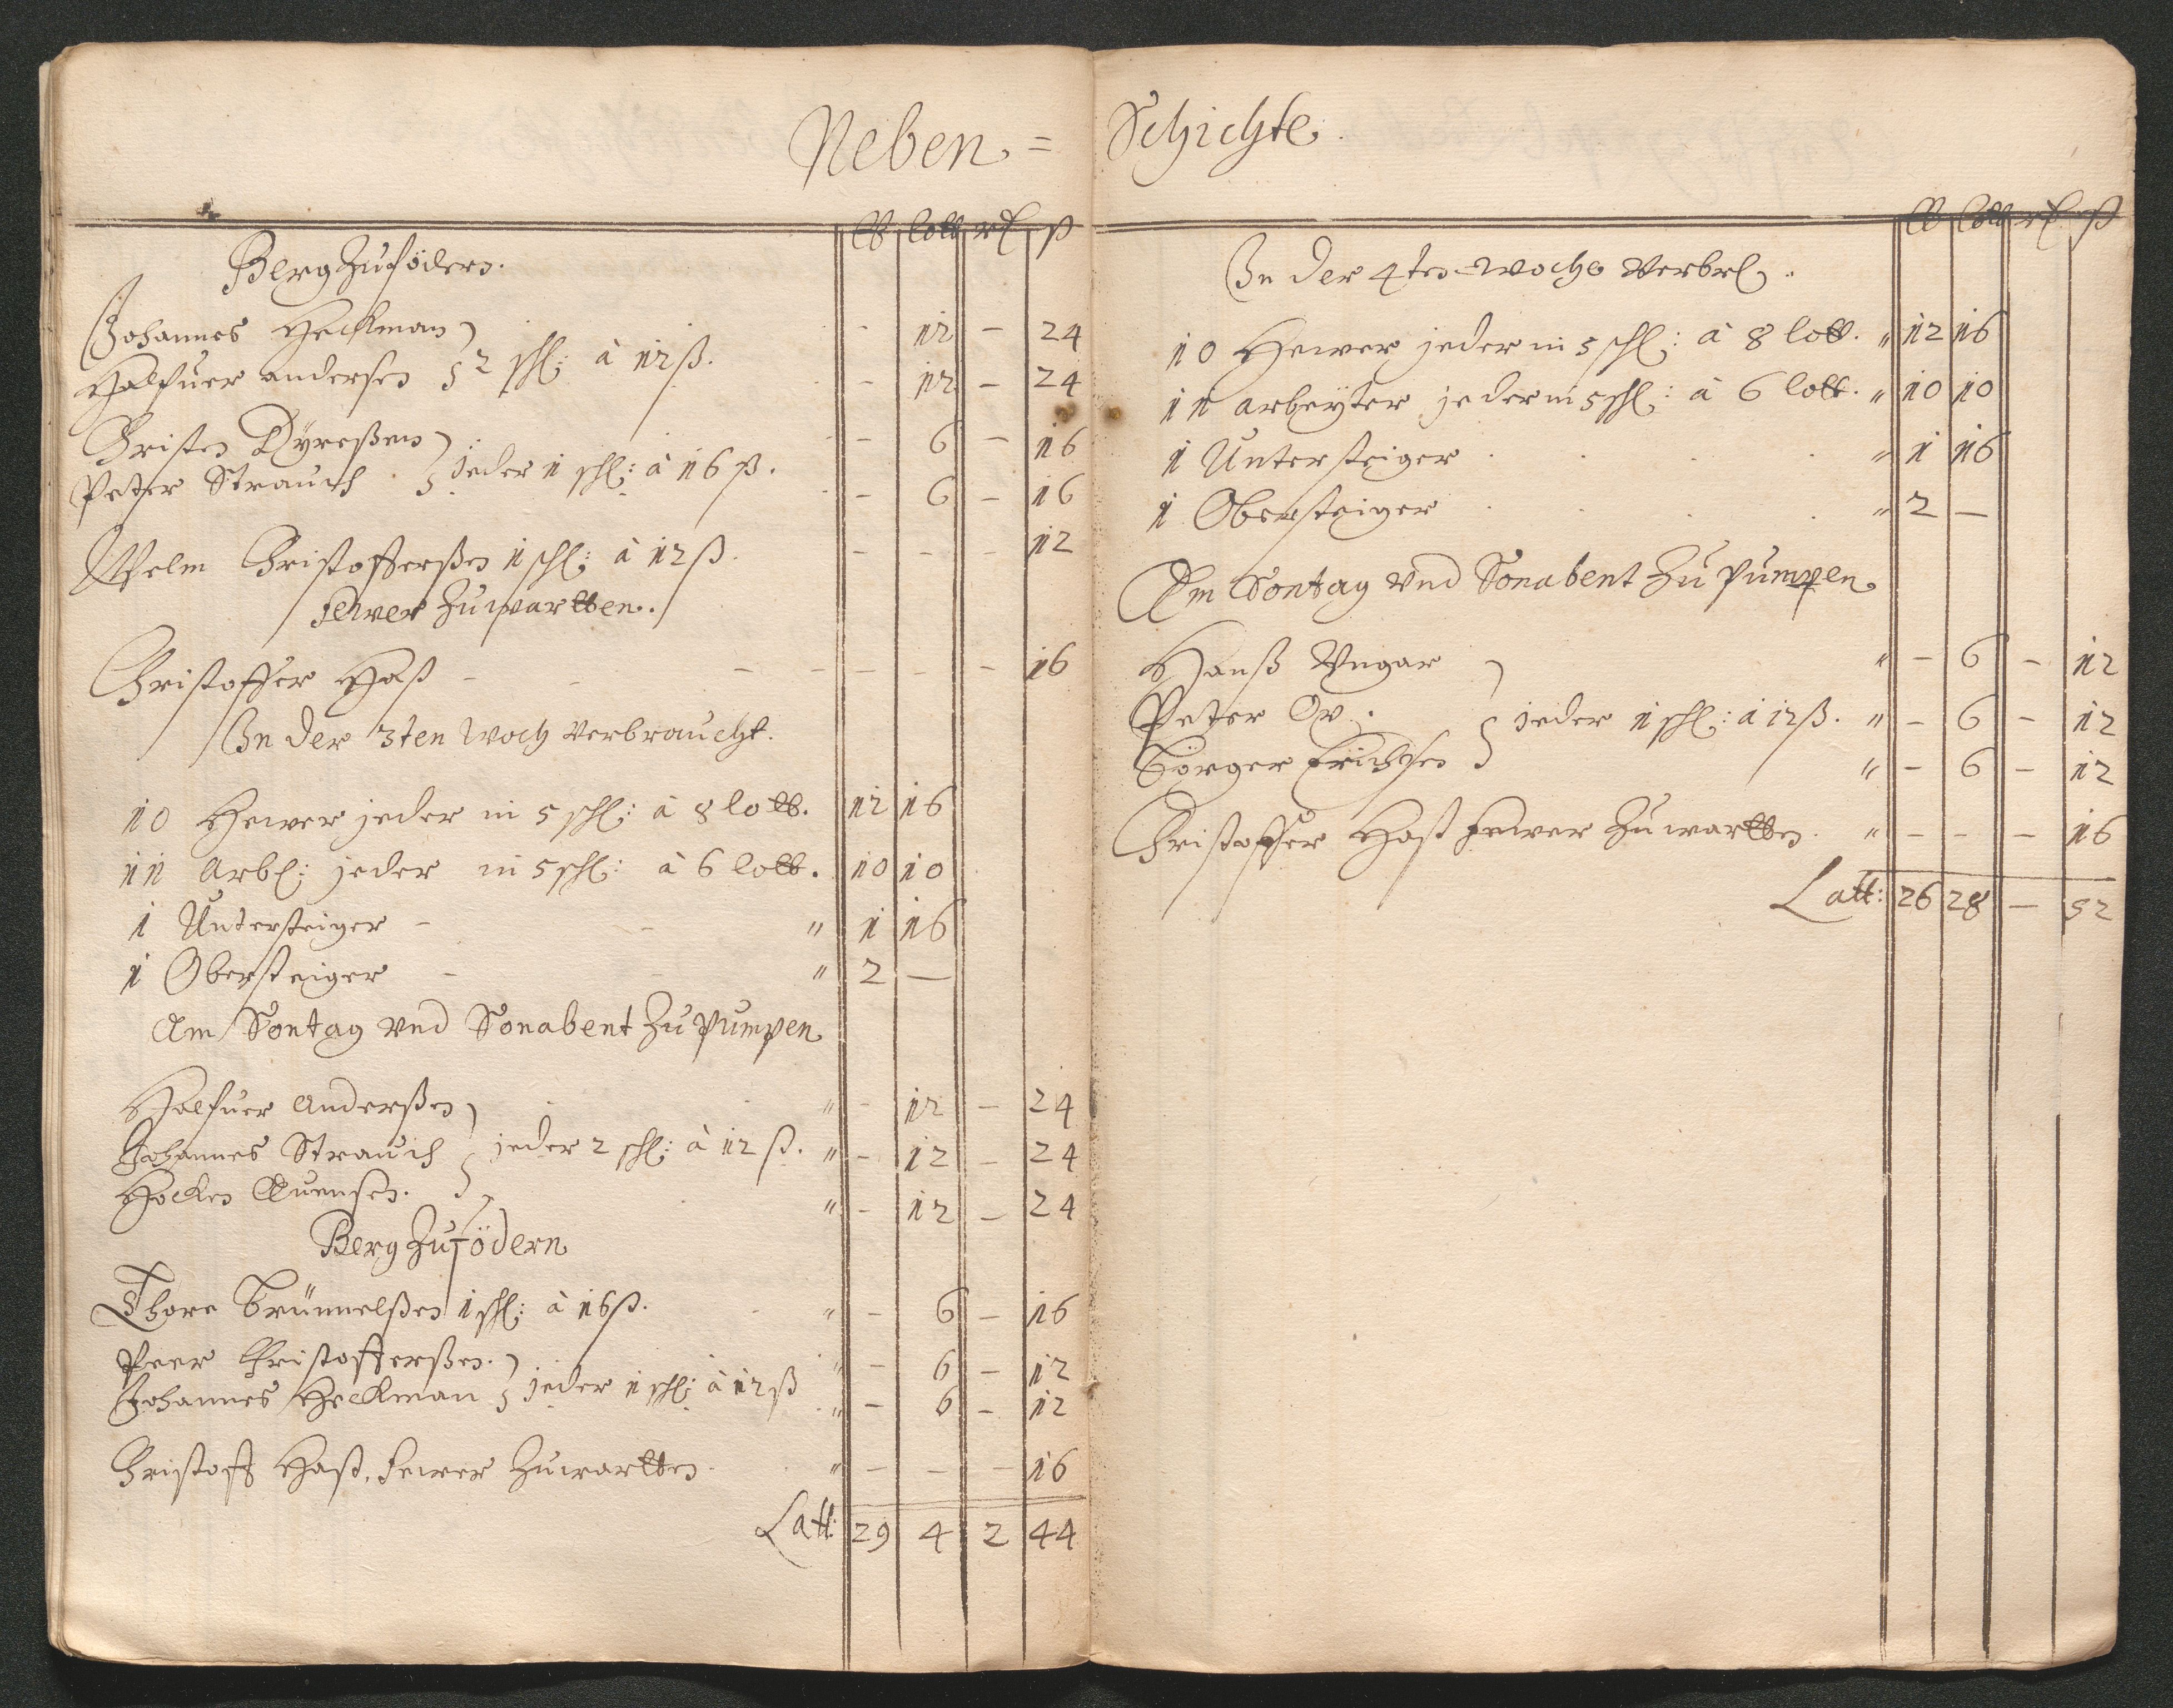 Neben = Schichte.
lb lott rt ß
Berg zu födern.
Johannes Heckman - 12 - 24
Halfuer andersen 2 schl: à 12 ß. - 12 - 24
Christen - 6 - 16
Peter Strauch jeder 1 schl: à 16 ß. - 6 - 16
Christofferßen 1 schl: à 12 ß. - - - 12
Fewer zu wartten.
Christoffer Haß - - - - 16
In der 3ten Woch verbraucht.
10 Hewer jeder in 5 schl: à 8 lott. 12 16
11 Arb: jeder in 5 schl: à 6 lott. 10 10
1 Untersteiger - - " 1 16
1 Obersteiger - - " 2 -
Am Sontag vnd Sonabent zu pumpen
Halfuer Anderßen " - 12 - 24
Johannes Strauch jeder 2 schl: à 12 ß. " - 12 - 24
" - 12 - 24
Berg zu födern
Thore 1 schl: à 16 ß. " - 6 - 16
Peer Christofferßen. " - 6 - 12
Johannes Heckman jeder 1 schl: à 12 ß " - 6 - 12
Christoff Haß. Fewer zu wartten " - - - 16
Latt: 29 4 2 44
lb lott rt ß
In der 4ten Woche verbr.
10 Hewer jeder in 5 schl: à 8 lott. " 12 16
11 arbeyter jeder in 5 schl: à 6 lott. " 10 10
1 Untersteiger " 1 16
1 Obersteiger " 2 -
Am Sontag vnd Sonabent zu pumpen
Hanß Vngar " - 6 - 12
Peter Ov. jeder 1 schl: à 12 ß. " - 6 - 12
Erichsen " - 6 - 12
Christoffer Haß fewer zu wartten. " - - - 16
Latt: 26 28 - 52